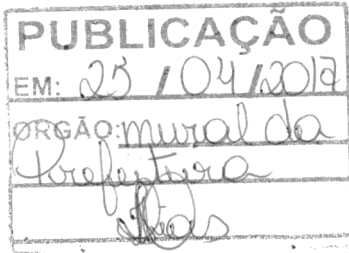 PUBLICAÇÃO
EM: 25/04/2017
ORGÃO: mural da
Prefeitura